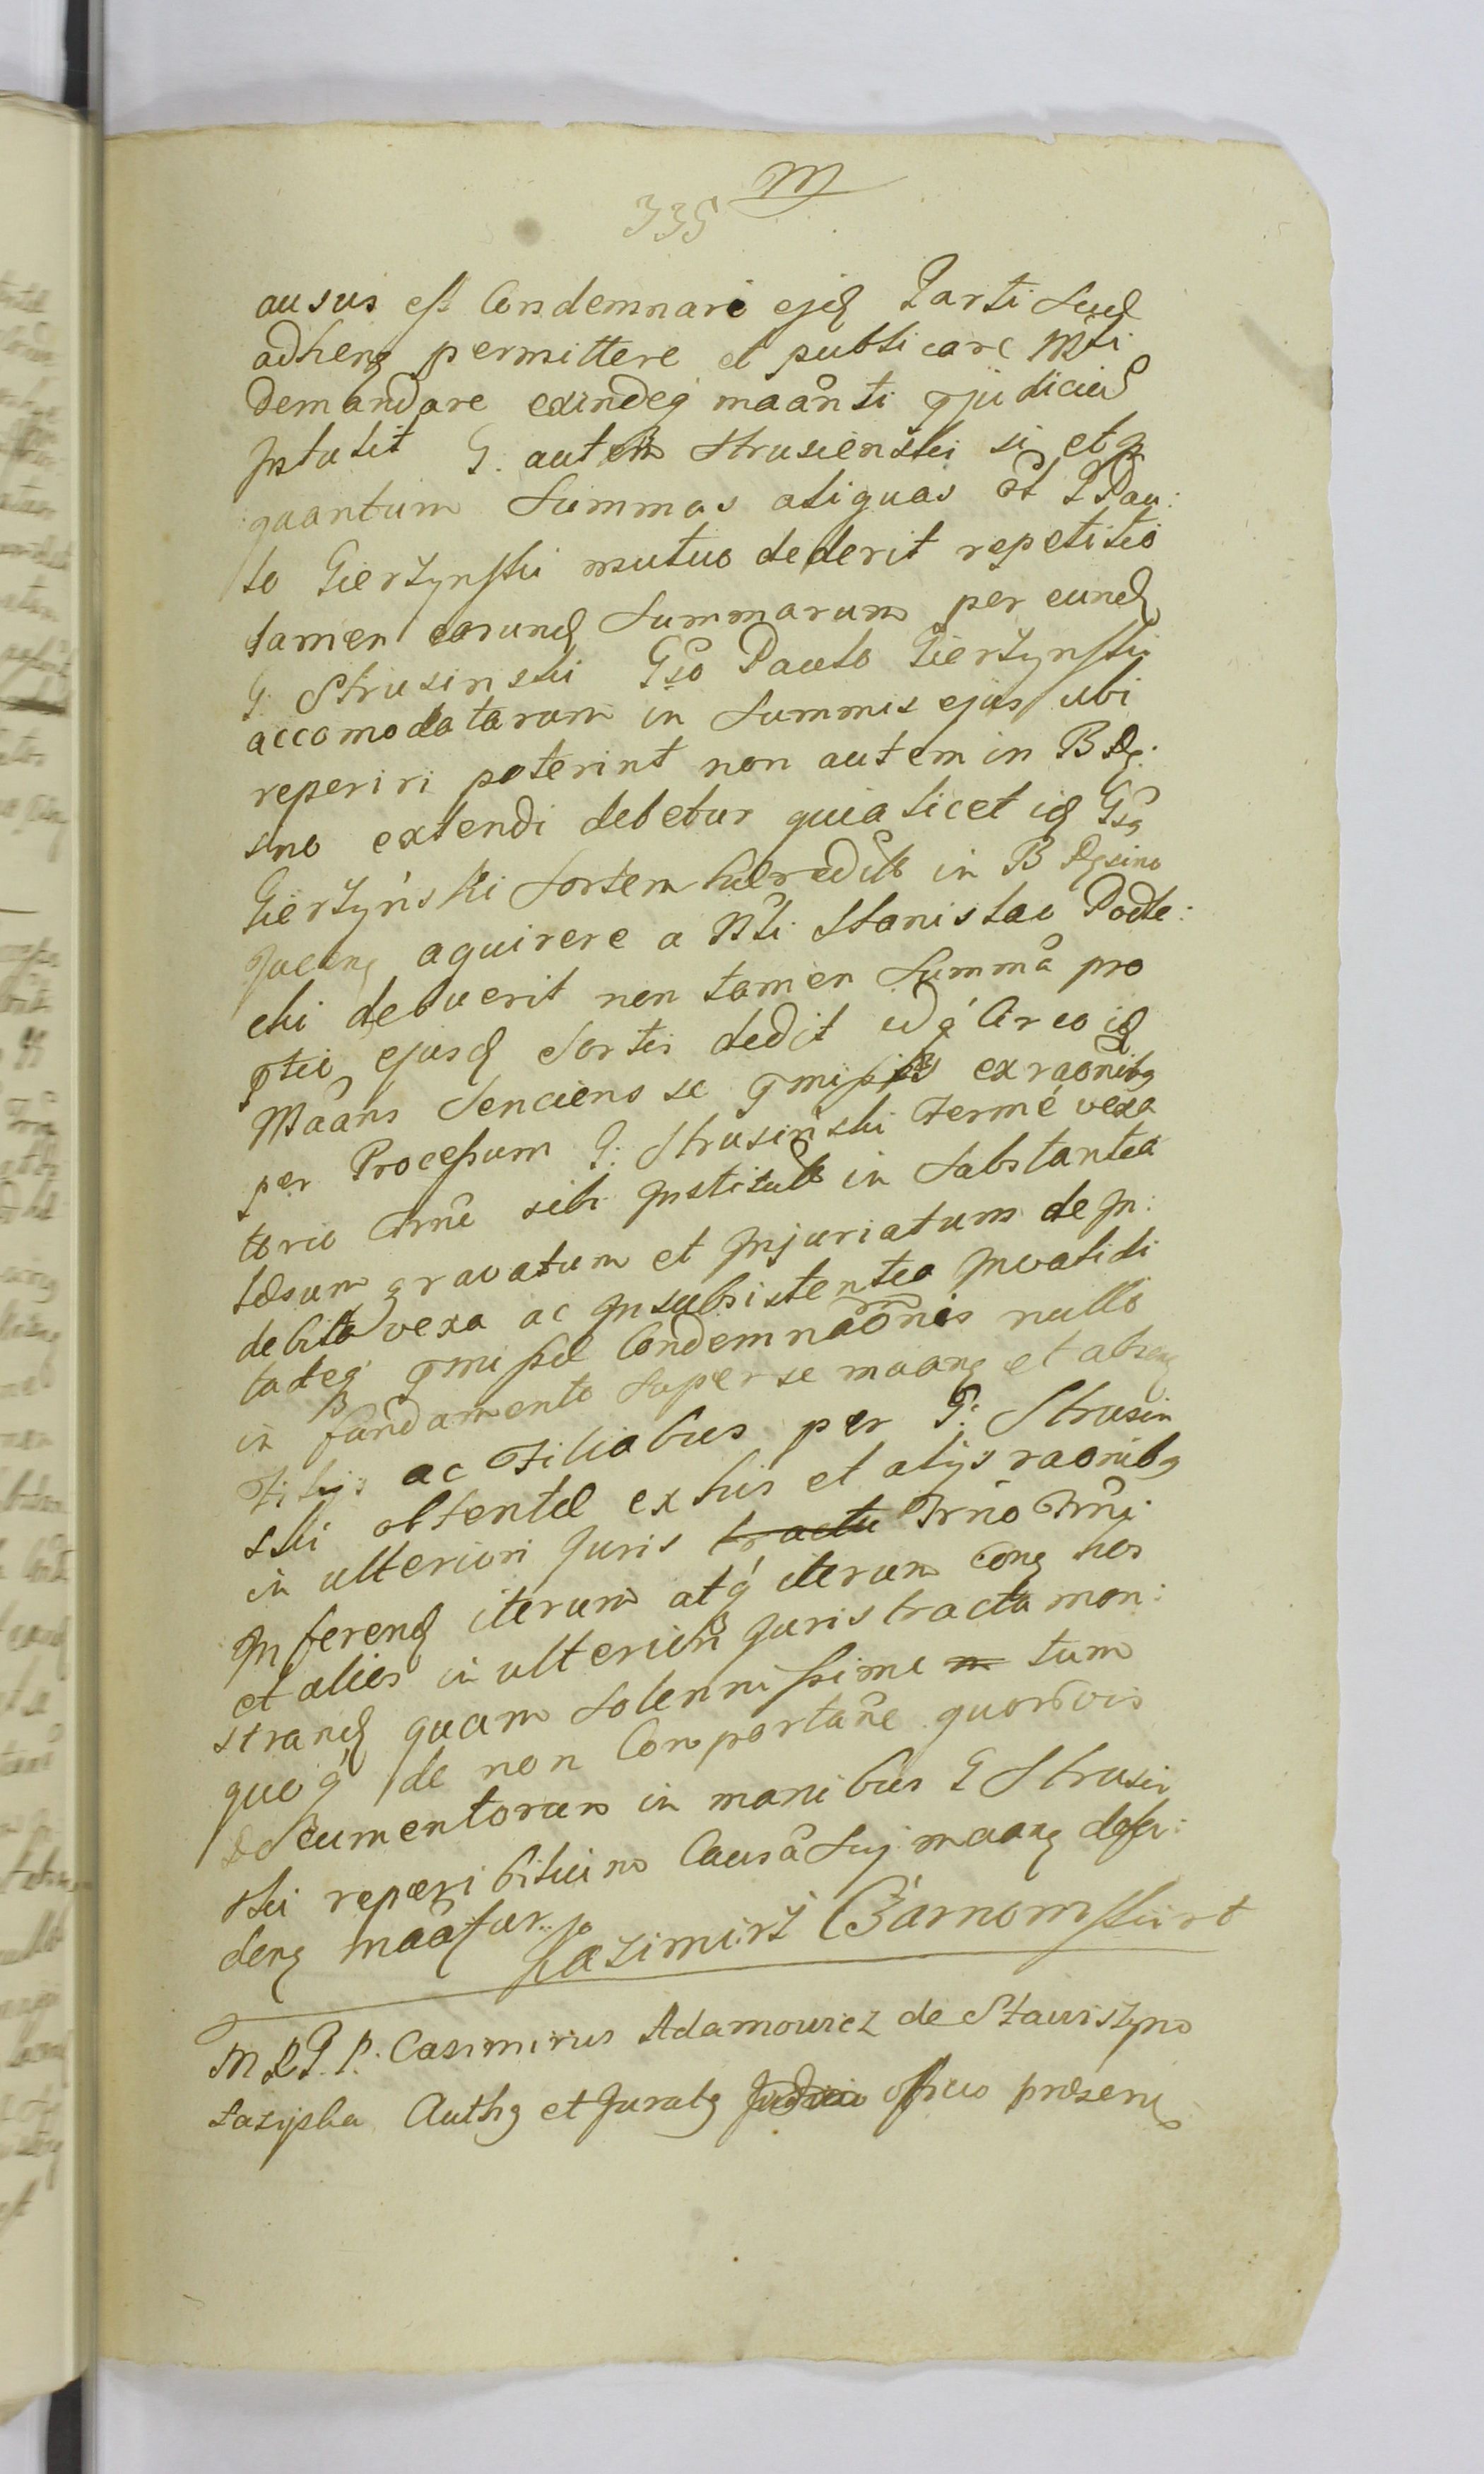 M
335
ausus est Condemnari ejq Parti
adhenq permittere et publicare Mti
Demandare exindeq maanti pjudiciu
Intulit G. autem Strusienski si et
quantum Summas aliquas Pau:
lo Gierzynski mutuo dederit repetitio
tamen earunq Summarum per eunq
G. Strusinski Gso Paulo Gierzynski
accomodatarum in Summis ejus ubi
reperiri poterint non autem in B
extendi debetur quia licet iq Gsq
Gierzyński Sortem in B
Jacenq aquirere a Mti Stanislao Podle:
cki debuerit non tamen Summa pro
ejusq Sortis dedit idq Circo iq
Maans Senciens se ex raonibq
per Processum G: Strusinski Terme vexa
torie sibi Institut in Substantia
lesum gravatum et Injuriatum de In:
debita vexa ac Insubsistentia Invalidi
tateq Condemnaonis nullo
in fundamento super se maanq et absenq
Filijs ac Filiabus per G: Strusin
ski obtente ex his et alijs raonibq
in ulteriori Juris tractu Trno Trni
Inferenq iterum atq iterum Conq hos
et alios in ulteriori Juris tractu mon:
stranq quam Solennissime tum
quoq de non Comportane quorvis
Documentorum in manibus G Strusin
ski reperibilium Causa Suj maanq
denq maatur.
Kazimirz Czarnomski
M R G. P. Casimirus Adamowicz de Stawiszyno
Authq et Juratq officio presens